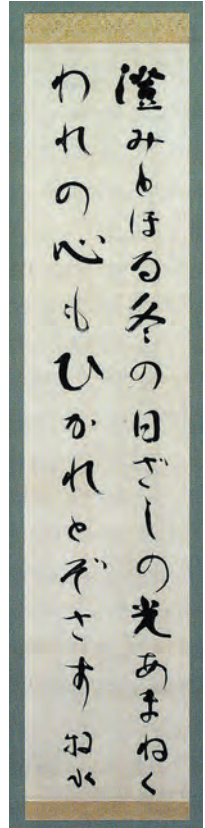 澄みとほる冬の日ざしの光あまねく
われの心もひかれとぞさす 牧水